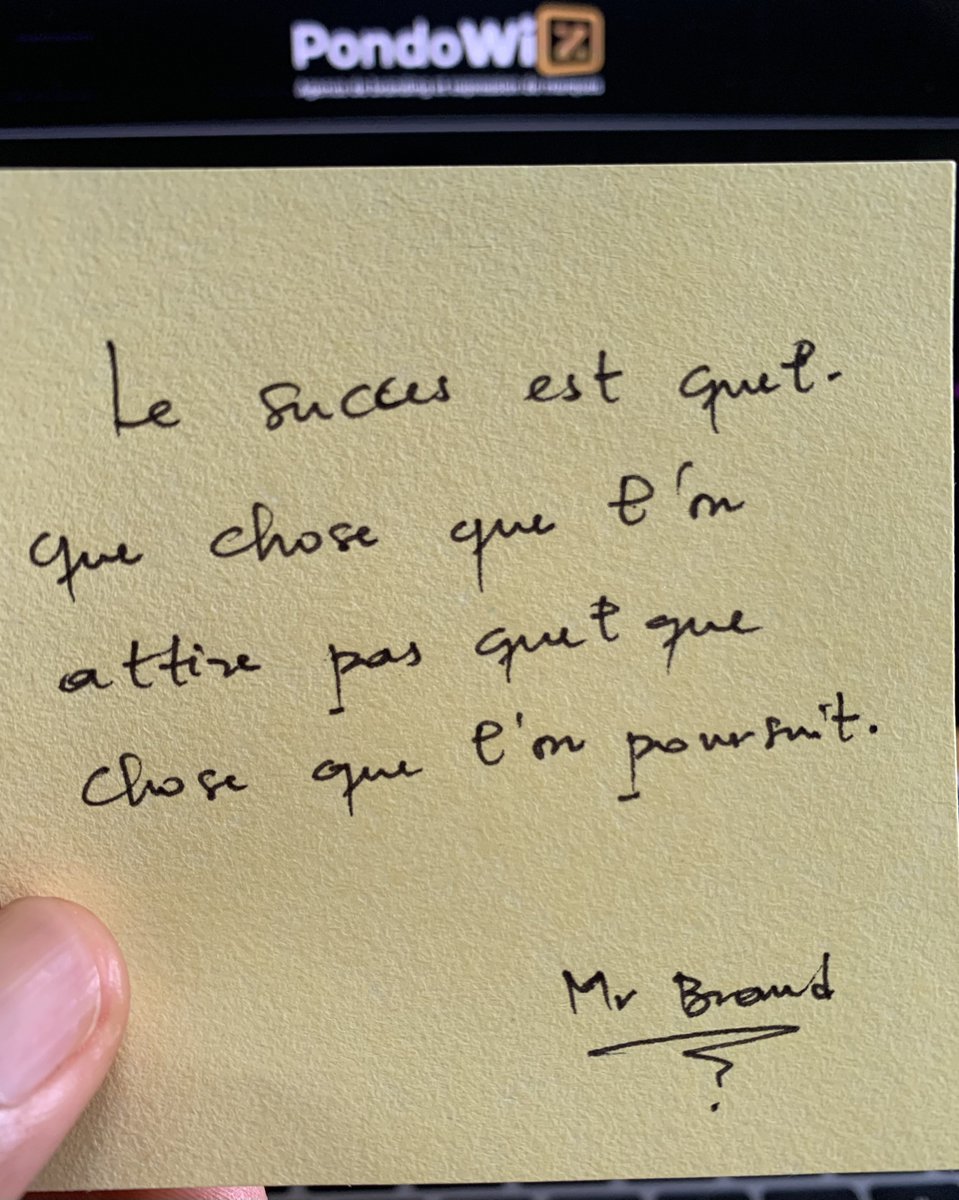 PondoWiz
Le succes est quel-
que chose que l'on
attire pas quelque
chose que l'on poursuit.
Mr Brand